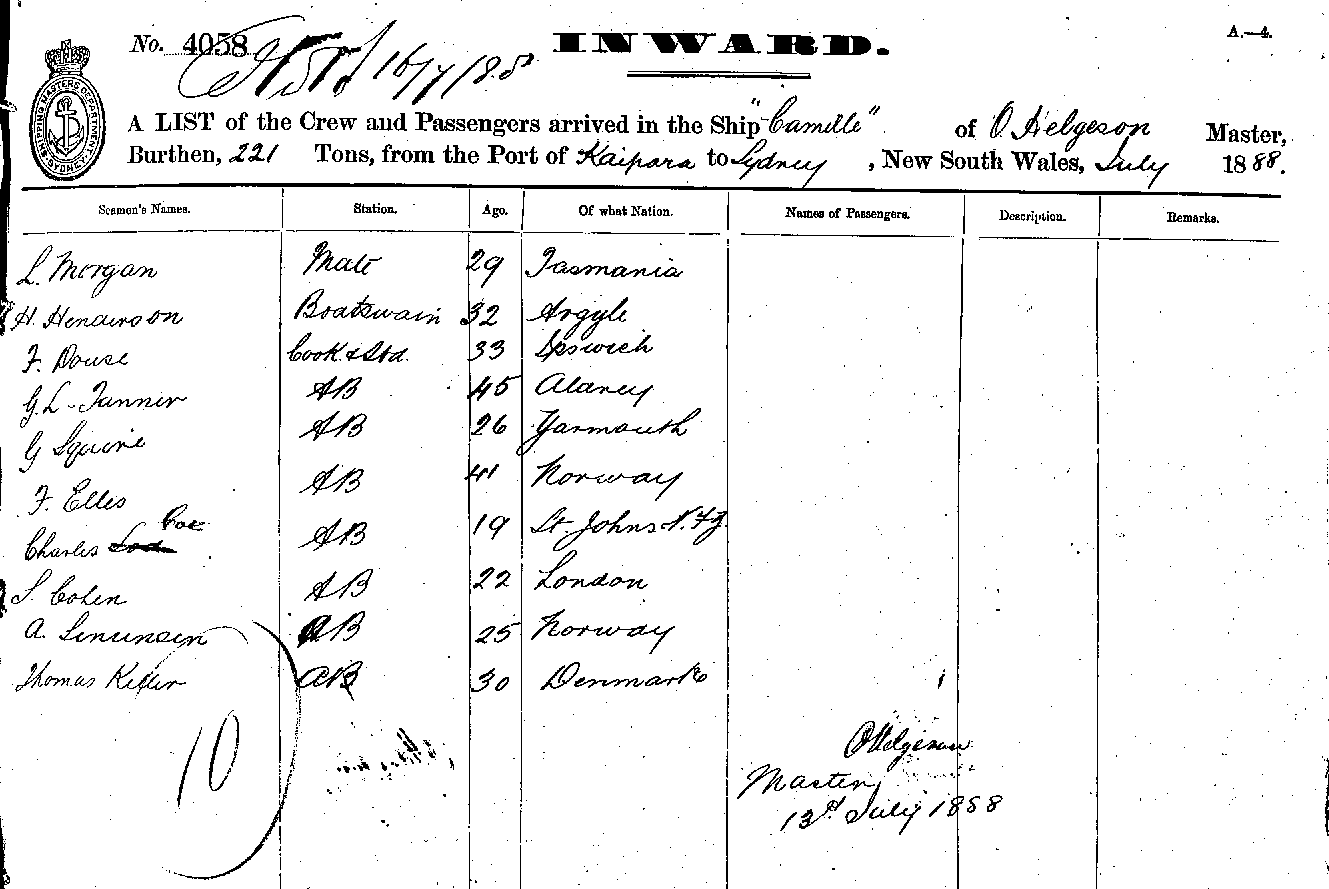 No. 4058 INWARD. A.—4.
16/7/88
SHIPPING MASTERS DEPARTMENT SYDNEY
A LIST of the Crew and Passengers arrived in the Ship "Camille" of O Helgeson Master,
Burthen, 221 Tons, from the Port of Kaipara to Sydney, New South Wales, July 1888.
Seamen's Names. Station. Age. Of what Nation. Names of Passengers. Description. Remarks.
L. Morgan Mate 29 Tasmania
H. Henderson Boatswain 32 Argyle
F. Douse Cook & Std. 33 Ipswich
G. L. Tanner AB 45 
G Squire AB 26 Yarmouth
F. Elles AB 41 Norway
Charles Coe AB 19 St. Johns N.F.
S. Cohen AB 22 London
A. AB 25 Norway
Thomas AB 30 Denmark
10
O Helgeson
Master
13th July 1888